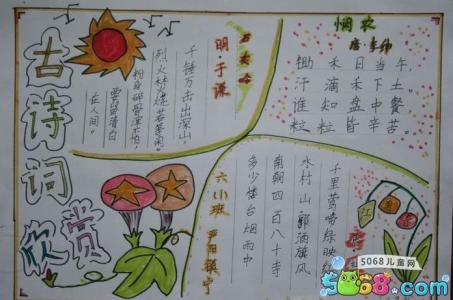 古诗词欣赏
石灰吟
明·于谦
千锤万击出深山,
烈火焚烧若等闲。
粉身碎骨浑不怕,
要留清白
在人间。
悯农
唐·李绅
锄禾日当午。
汗滴禾下土
谁知盘中餐
粒粒皆辛苦
江南
千里莺啼绿映
水村山郭酒旗风
南朝四百八十寺
多少楼台烟雨中
六小班
5068儿童网
5068.com